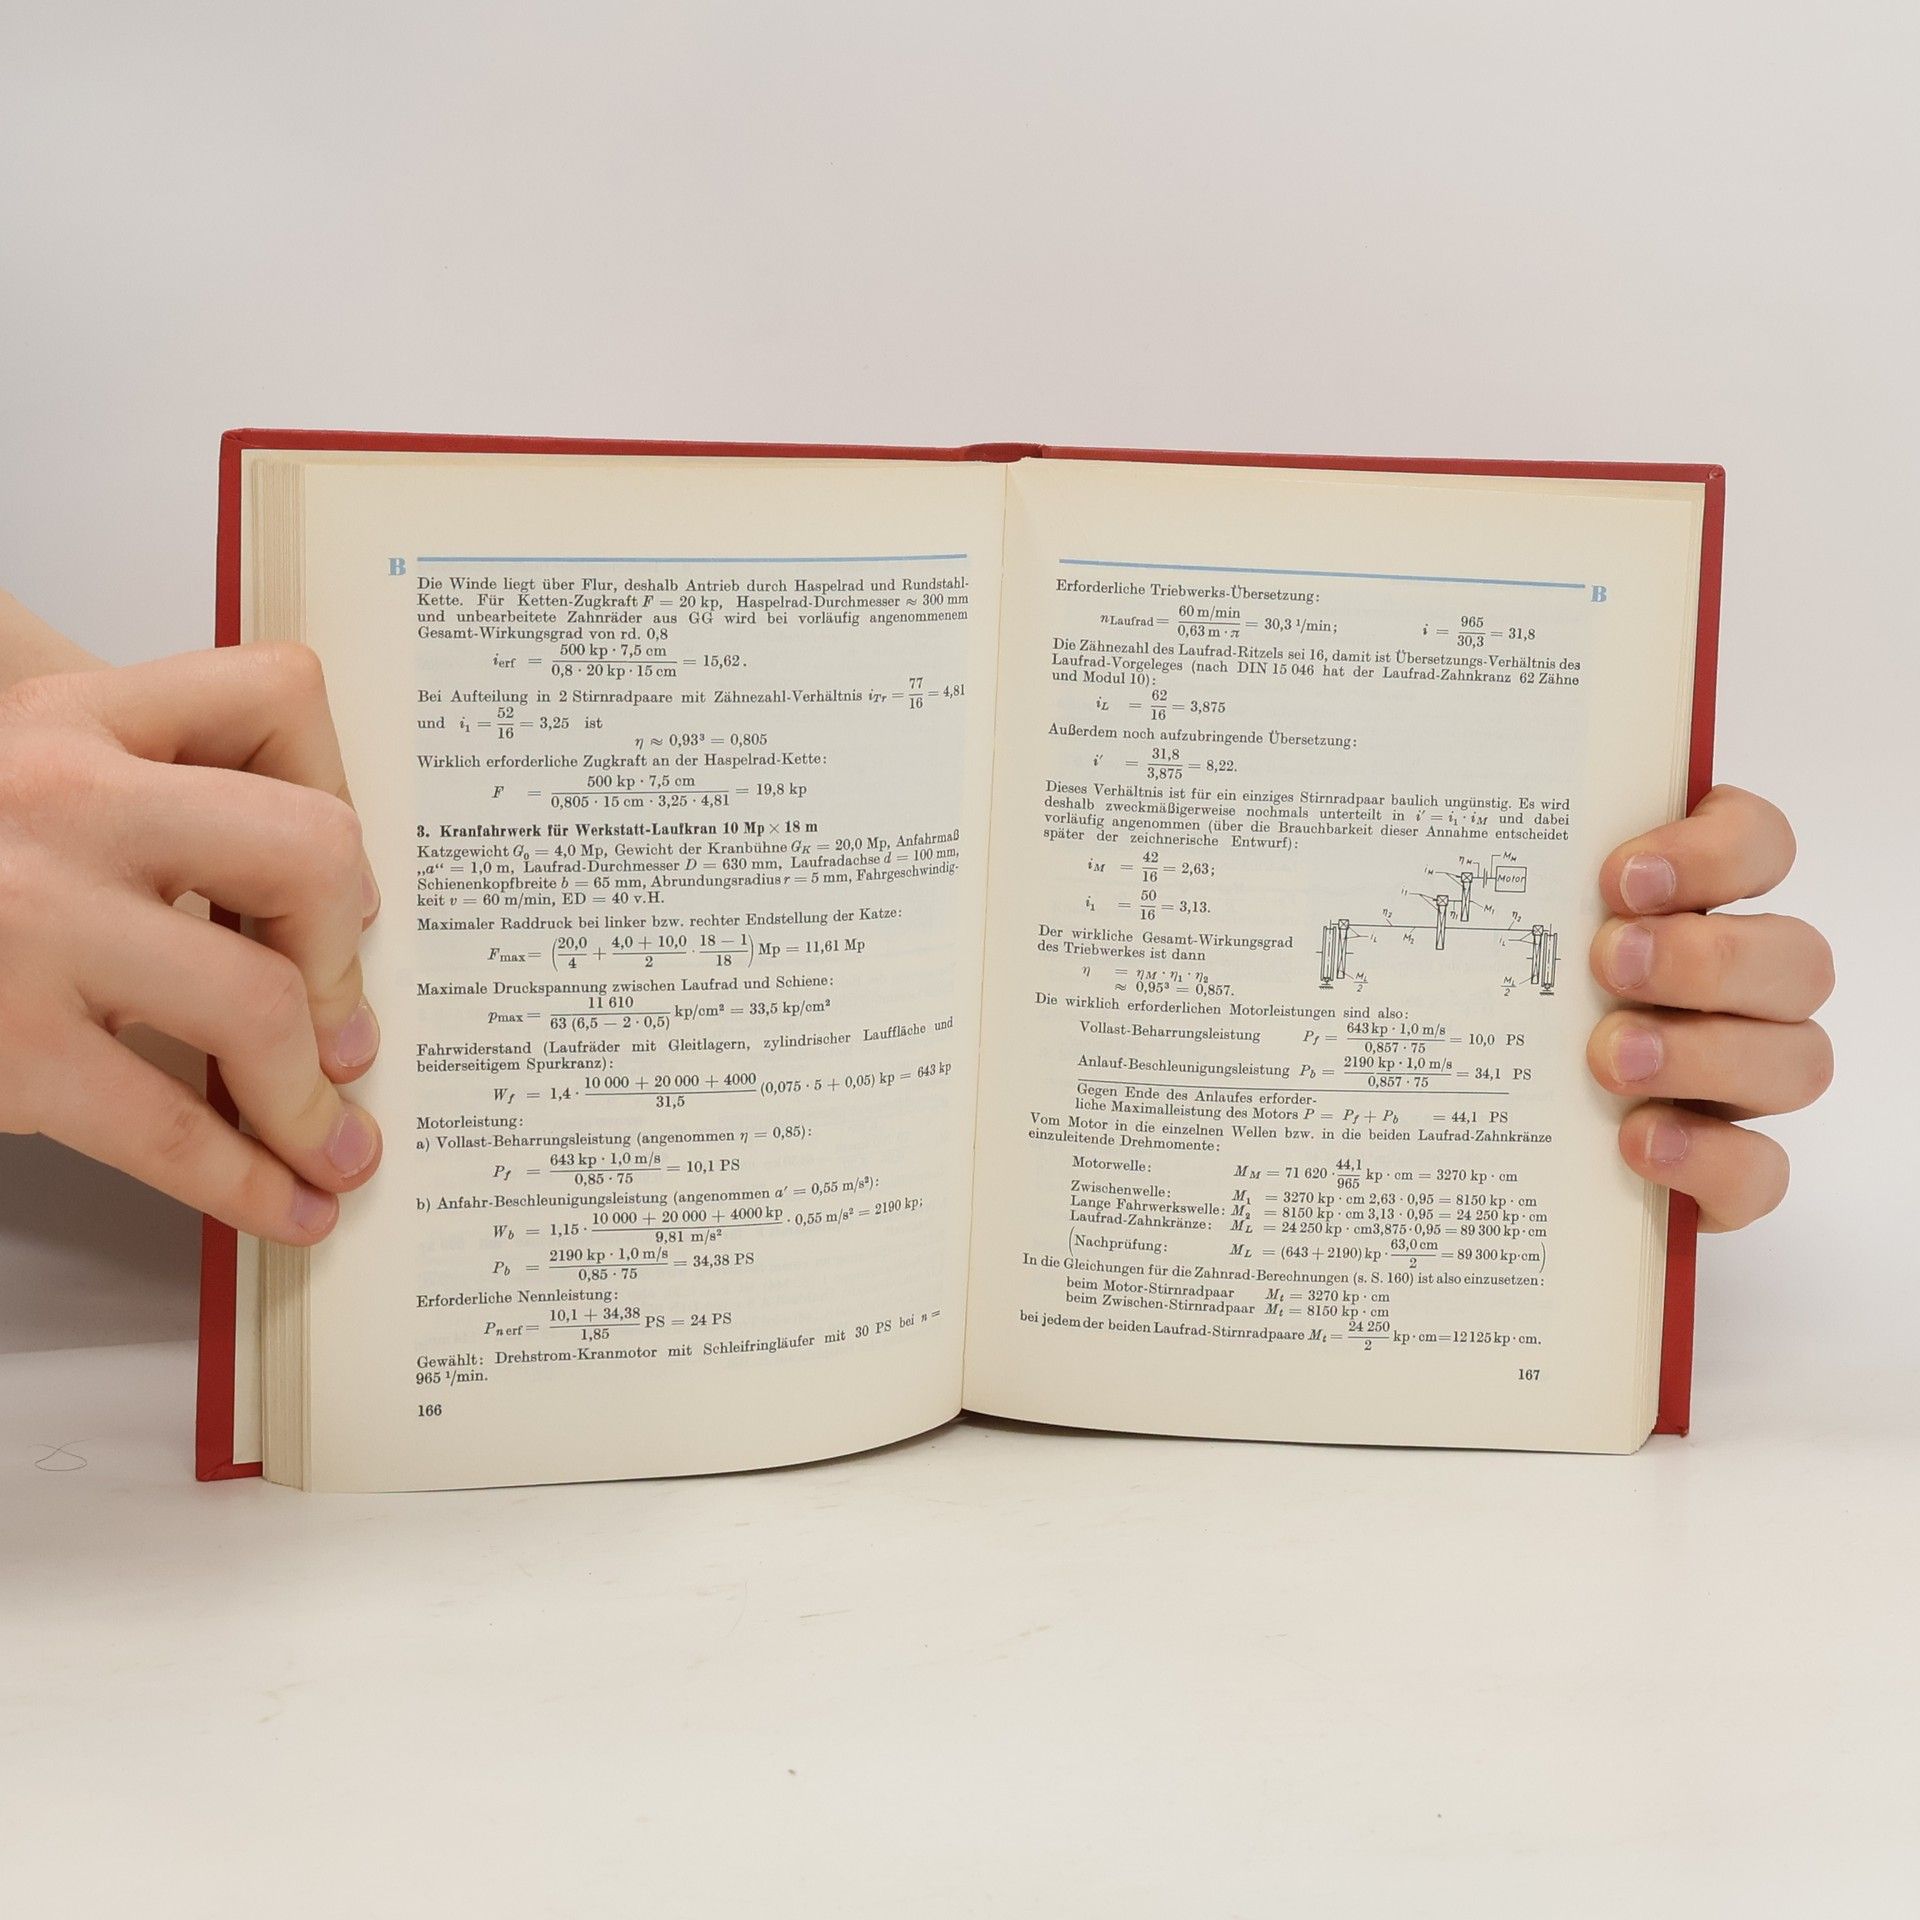 B
Die Winde liegt über Flur, deshalb Antrieb durch Haspelrad und Rundstahl-
Kette. Für Ketten-Zugkraft F = 20 kp, Haspelrad-Durchmesser ≈ 300 mm
und unbearbeitete Zahnräder aus GG wird bei vorläufig angenommenem
Gesamt-Wirkungsgrad von rd. 0,8
i_erf = (500 kp · 7,5 cm)/(0,8 · 20 kp · 15 cm) = 15,62.
Bei Aufteilung in 2 Stirnradpaare mit Zähnezahl-Verhältnis i_Tr = 77/16 = 4,81
und i₁ = 52/16 = 3,25 ist
η ≈ 0,93³ = 0,805
Wirklich erforderliche Zugkraft an der Haspelrad-Kette:
F = (500 kp · 7,5 cm)/(0,805 · 15 cm · 3,25 · 4,81) = 19,8 kp
3. Kranfahrwerk für Werkstatt-Laufkran 10 Mp × 18 m
Katzgewicht G₀ = 4,0 Mp, Gewicht der Kranbühne G_K = 20,0 Mp, Anfahrmaß
„a“ = 1,0 m, Laufrad-Durchmesser D = 630 mm, Laufradachse d = 100 mm,
Schienenkopfbreite b = 65 mm, Abrundungsradius r = 5 mm, Fahrgeschwindig-
keit v = 60 m/min, ED = 40 v.H.
Maximaler Raddruck bei linker bzw. rechter Endstellung der Katze:
F_max = (20,0/4 + (4,0 + 10,0)/2 · (18 − 1)/18) Mp = 11,61 Mp
Maximale Druckspannung zwischen Laufrad und Schiene:
p_max = 11 610/(63 (6,5 − 2 · 0,5)) kp/cm² = 33,5 kp/cm²
Fahrwiderstand (Laufräder mit Gleitlagern, zylindrischer Lauffläche und
beiderseitigem Spurkranz):
W_f = 1,4 · (10 000 + 20 000 + 4000)/31,5 (0,075 · 5 + 0,05) kp = 643 kp
Motorleistung:
a) Vollast-Beharrungsleistung (angenommen η = 0,85):
P_f = (643 kp · 1,0 m/s)/(0,85 · 75) = 10,1 PS
b) Anfahr-Beschleunigungsleistung (angenommen a′ = 0,55 m/s²):
W_b = 1,15 · (10 000 + 20 000 + 4000 kp)/(9,81 m/s²) · 0,55 m/s² = 2190 kp;
P_b = (2190 kp · 1,0 m/s)/(0,85 · 75) = 34,38 PS
Erforderliche Nennleistung:
P_n erf = (10,1 + 34,38)/1,85 PS = 24 PS
Gewählt: Drehstrom-Kranmotor mit Schleifringläufer mit 30 PS bei n =
965 ¹/min.
166
B
Erforderliche Triebwerks-Übersetzung:
n_Laufrad = (60 m/min)/(0,63 m · π) = 30,3 ¹/min; i = 965/30,3 = 31,8
Die Zähnezahl des Laufrad-Ritzels sei 16, damit ist Übersetzungs-Verhältnis des
Laufrad-Vorgeleges (nach DIN 15 046 hat der Laufrad-Zahnkranz 62 Zähne
und Modul 10):
i_L = 62/16 = 3,875
Außerdem noch aufzubringende Übersetzung:
i′ = 31,8/3,875 = 8,22.
Dieses Verhältnis ist für ein einziges Stirnradpaar baulich ungünstig. Es wird
deshalb zweckmäßigerweise nochmals unterteilt in i′ = i₁ · i_M und dabei
vorläufig angenommen (über die Brauchbarkeit dieser Annahme entscheidet
später der zeichnerische Entwurf):
i_M = 42/16 = 2,63;
i₁ = 50/16 = 3,13.
i_M η_M M_M Motor
i₁ η₁ M₁
η₂ M₂ η₂
i_L i_L
M_L/2 M_L/2
Der wirkliche Gesamt-Wirkungsgrad
des Triebwerkes ist dann
η = η_M · η₁ · η₂
≈ 0,95³ = 0,857.
Die wirklich erforderlichen Motorleistungen sind also:
Vollast-Beharrungsleistung P_f = (643 kp · 1,0 m/s)/(0,857 · 75) = 10,0 PS
Anlauf-Beschleunigungsleistung P_b = (2190 kp · 1,0 m/s)/(0,857 · 75) = 34,1 PS
Gegen Ende des Anlaufes erforder-
liche Maximalleistung des Motors P = P_f + P_b = 44,1 PS
Vom Motor in die einzelnen Wellen bzw. in die beiden Laufrad-Zahnkränze
einzuleitende Drehmomente:
Motorwelle: M_M = 71 620 · 44,1/965 kp · cm = 3270 kp · cm
Zwischenwelle: M₁ = 3270 kp · cm 2,63 · 0,95 = 8150 kp · cm
Lange Fahrwerkswelle: M₂ = 8150 kp · cm 3,13 · 0,95 = 24 250 kp · cm
Laufrad-Zahnkränze: M_L = 24 250 kp · cm 3,875 · 0,95 = 89 300 kp · cm
(Nachprüfung: M_L = (643 + 2190) kp · 63,0 cm/2 = 89 300 kp·cm)
In die Gleichungen für die Zahnrad-Berechnungen (s. S. 160) ist also einzusetzen:
beim Motor-Stirnradpaar M_t = 3270 kp · cm
beim Zwischen-Stirnradpaar M_t = 8150 kp · cm
bei jedem der beiden Laufrad-Stirnradpaare M_t = 24 250/2 kp · cm = 12 125 kp · cm.
167